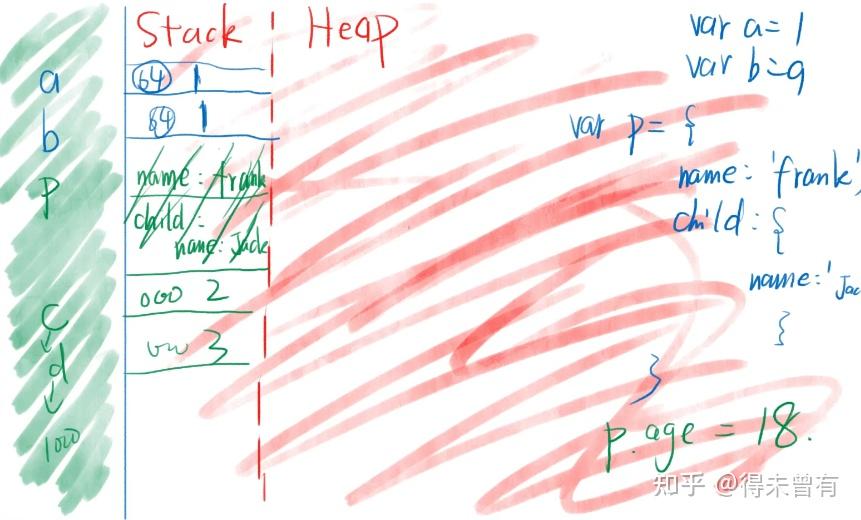 Stack
Heap
a
b
p
c
d
1000
64 1
64 1
name: frank
child:
name: Jack
000 2
3
var a=1
var b=a
var p= {
name: 'frank',
child: {
name: 'Jac
}
}
p.age = 18.
知乎 @得未曾有